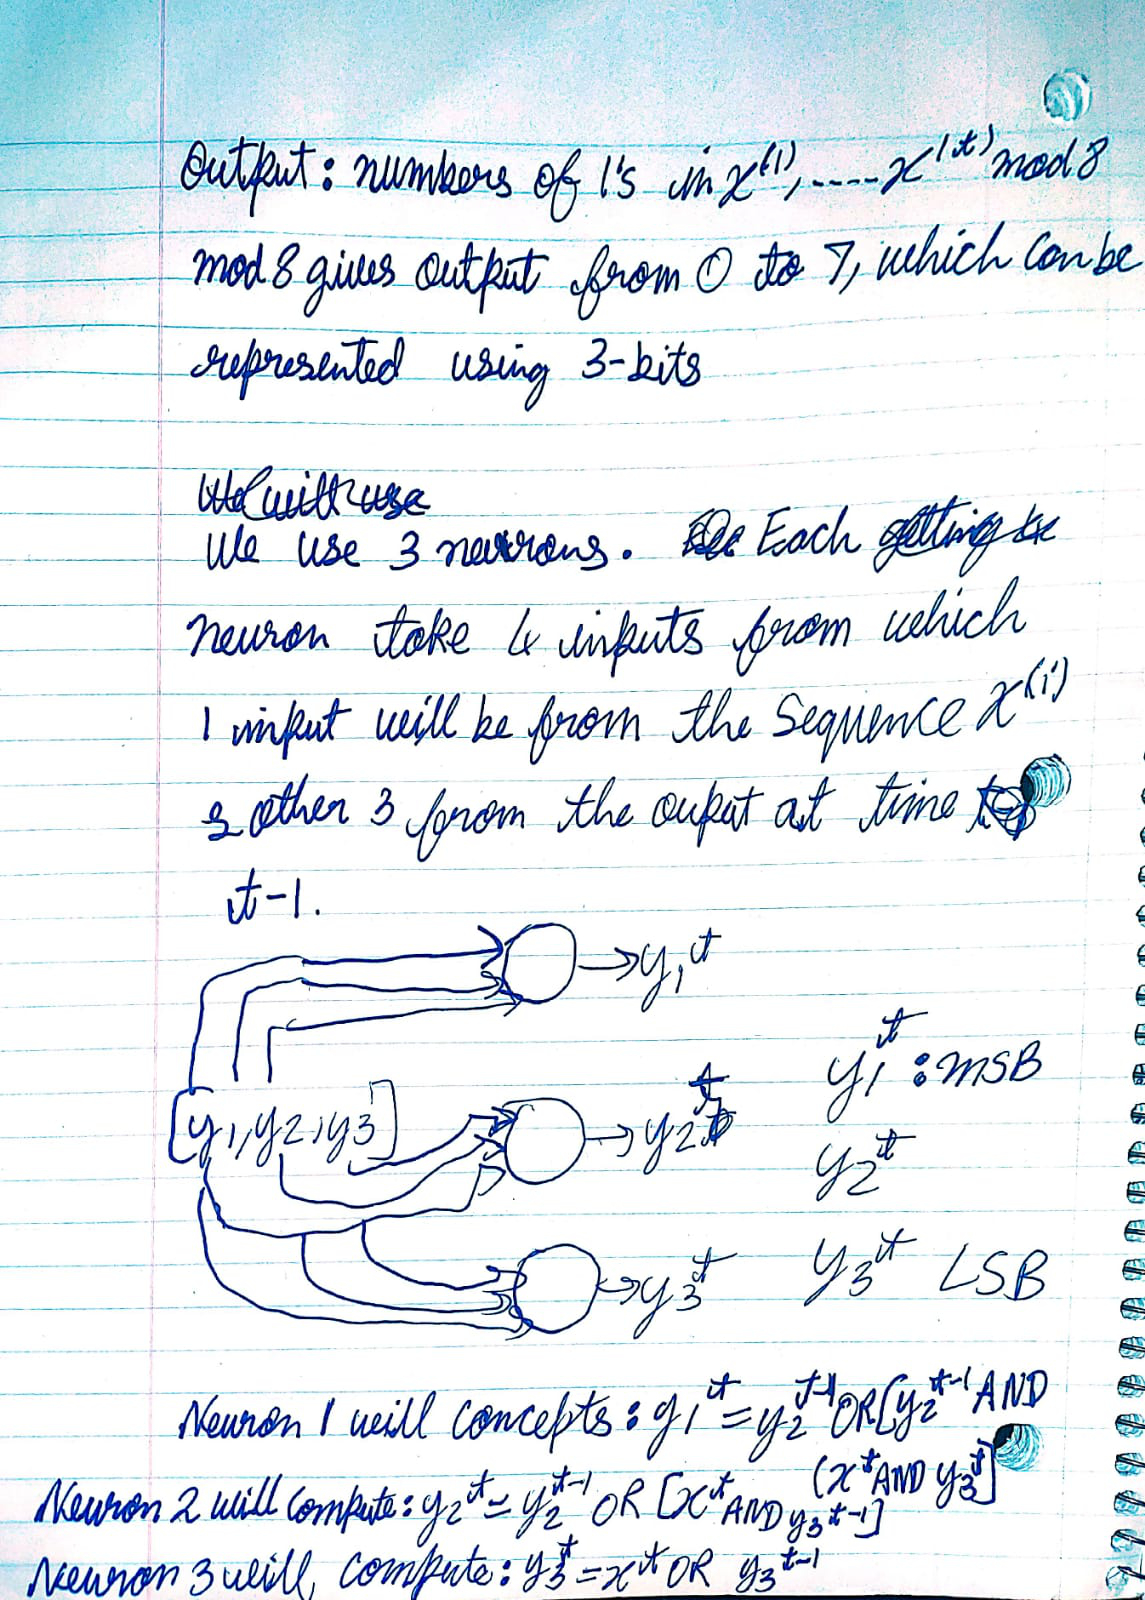 Output: numbers of 1's in x^(1), ..... x^(t) mod 8
mod 8 gives output from 0 to 7, which can be
represented using 3-bits
We will use
We use 3 neurons. Each getting
neuron take 4 inputs from which
1 input will be from the sequence x^(i)
& other 3 from the ouput at time
t-1.
→y1^t
y1^t : MSB
[y1, y2, y3]
→y2^t
y2^t
→y3^t
y3^t LSB
Neuron 1 will concepts: y1^t = y2^t-1 OR [y2^t-1 AND
(x^t AND y3^t]
Neuron 2 will compute: y2^t = y2^t-1 OR [x^t AND y3^t-1]
Neuron 3 will compute: y3^t = x^t OR y3^t-1